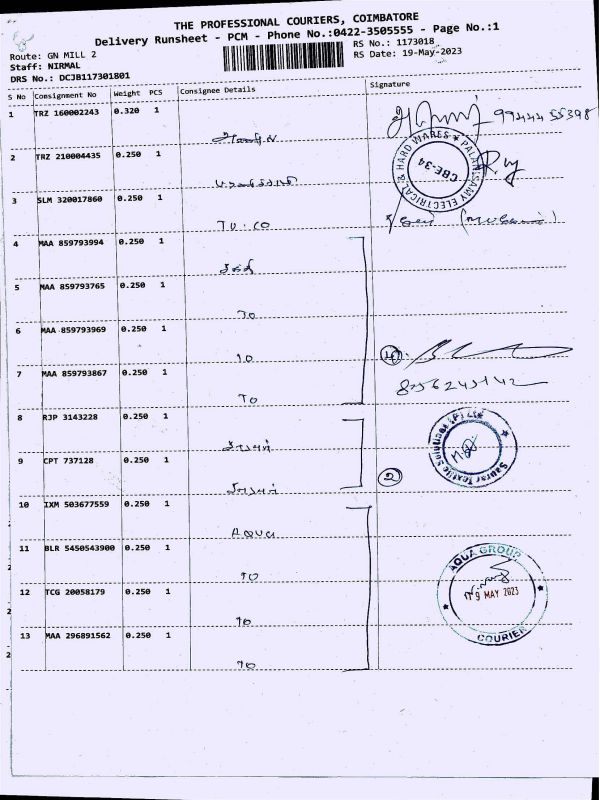 THE PROFESSIONAL COURIERS, COIMBATORE
Delivery Runsheet - PCM - Phone No.:0422-3505555 - Page No.:1
Route: GN MILL 2
RS No.: 1173018
Staff: NIRMAL
RS Date: 19-May-2023
DRS No.: DCJB117301801
S No Consignment No Weight PCS Consignee Details Signature
1 TRZ 160002243 0.320 1
2 TRZ 210004435 0.250 1
PALANISAMY ELECTRICAL & HARD WARES ★
CBE-34
3 SLM 320017860 0.250 1
TV. CO
4 MAA 859793994 0.250 1
5 MAA 859793765 0.250 1
TO
6 MAA 859793969 0.250 1
TO
4
7 MAA 859793867 0.250 1
TO
8 RJP 3143228 0.250 1
9 CPT 737128 0.250 1
2
10 IXM 503677559 0.250 1
AQUA
11 BLR 5450543900 0.250 1
TO
AQUA GROUP
19 MAY 2023
COURIER
12 TCG 20058179 0.250 1
TO
13 MAA 296891562 0.250 1
TO